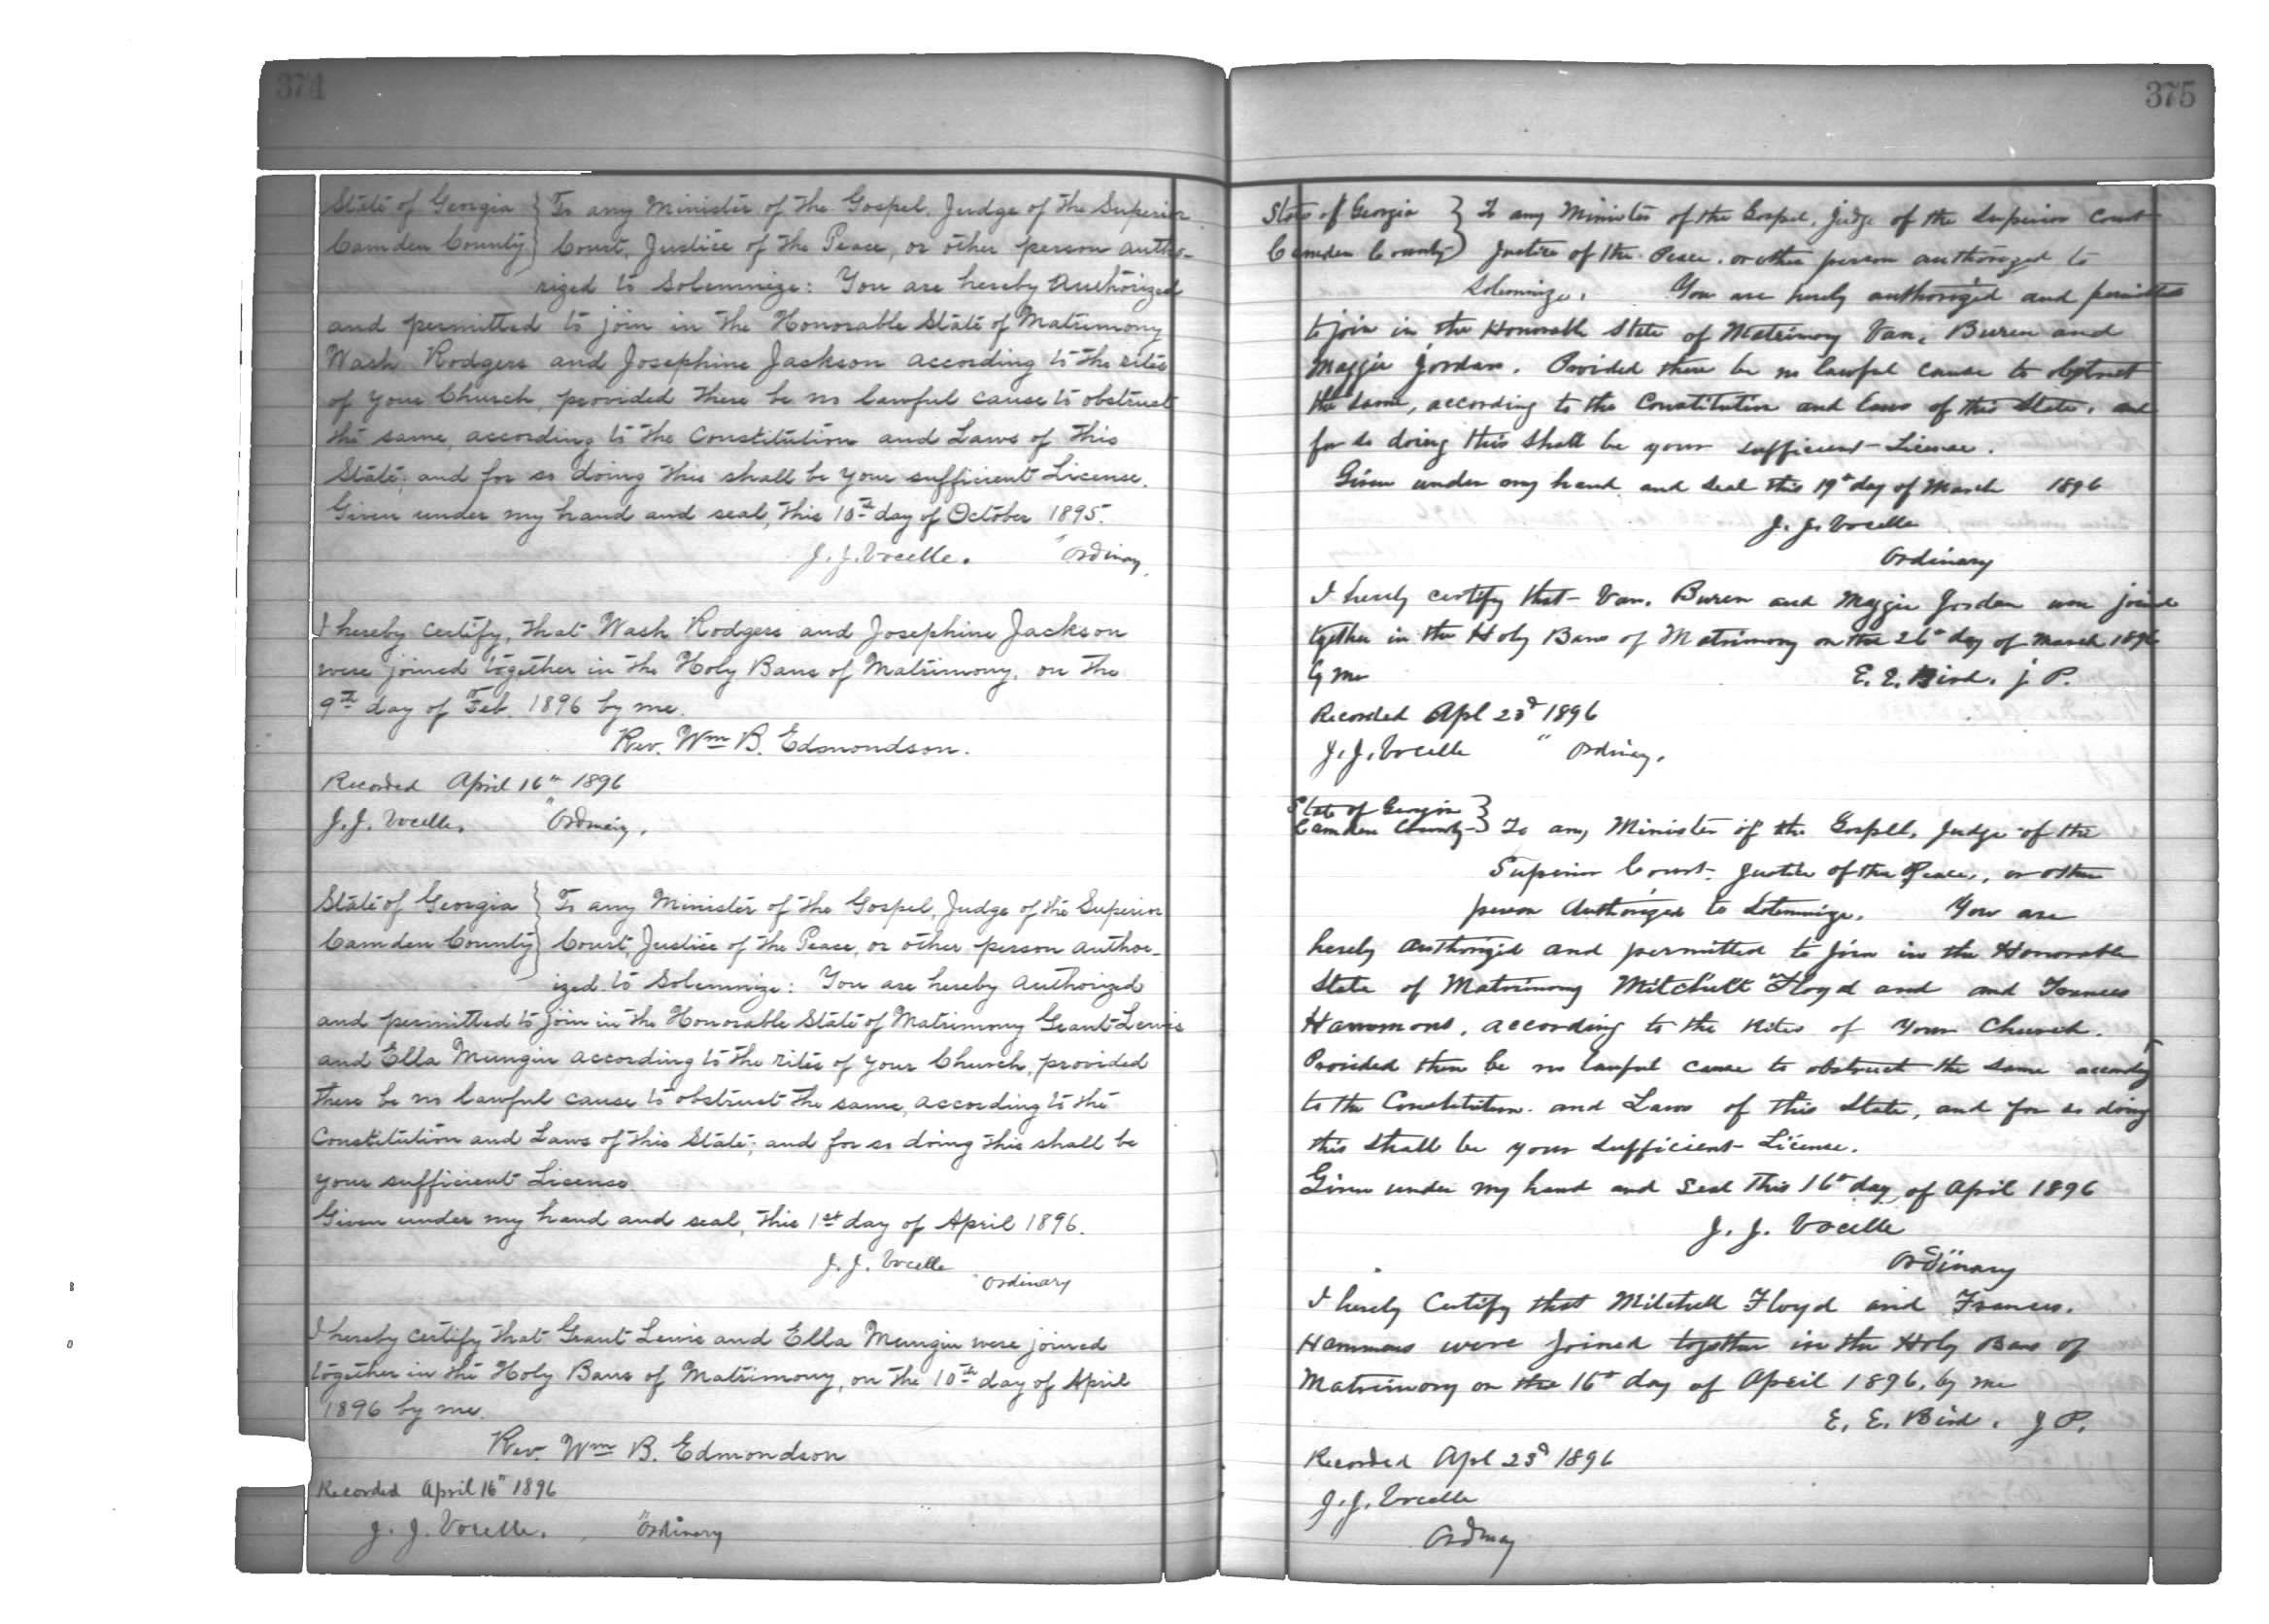 374
State of Georgia } To any Minister of the Gospel, Judge of the Superior
Camden County } Court, Justice of the Peace, or other person autho-
rized to Solemnize: You are hereby Authorized
and permitted to join in the Honorable State of Matrimony
Wash Rodgers and Josephine Jackson according to the rites
of your Church, provided there be no lawful cause to obstruct
the same, according to the Constitution and Laws of this
State; and for so doing this shall be your sufficient License.
Given under my hand and seal, this 10th day of October 1895.
J. J. Vocelle. Ordinary
I hereby certify, that Wash Rodgers and Josephine Jackson
were joined together in the Holy Bans of Matrimony, on the
9th day of Feb. 1896 by me.
Rev. Wm B. Edmondson.
Recorded April 16" 1896
J. J. Vocelle, "Ordinary.
State of Georgia } To any Minister of the Gospel, Judge of the Superior
Camden County } Court, Justice of the Peace, or other person author-
ized to Solemnize: You are hereby authorized
and permitted to join in the Honorable State of Matrimony Grant Lewis
and Ella Mungin according to the rites of your Church, provided
there be no lawful cause to obstruct the same, according to the
Constitution and Laws of this State; and for so doing this shall be
your sufficient License.
Given under my hand and seal, this 1st day of April 1896.
J. J. Vocelle Ordinary
I hereby certify that Grant Lewis and Ella Mungin were joined
together in the Holy Bans of Matrimony, on the 10th day of April
1896 by me.
Rev. Wm B. Edmondson
Recorded April 16" 1896
J. J. Vocelle. "Ordinary
375
State of Georgia } To any Minister of the Gospel, Judge of the Superior Court
Camden County } Justice of the Peace, or other person authorized to
Solemnize. You are hereby authorized and permitted
to join in the Honorable State of Matrimony Van. Buren and
Maggie Jordan. Provided there be no lawful cause to obstruct
the same, according to the Constitution and Laws of this State, and
for so doing this shall be your sufficient License.
Given under my hand and seal this 19th day of March 1896
J. J. Vocelle
Ordinary
I hereby certify that Van. Buren and Maggie Jordan were joined
together in the Holy Bans of Matrimony on the 26th day of March 1896
by me E. E. Bird. J. P.
Recorded Apl 23d 1896
J. J. Vocelle " Ordinary.
State of Georgia }
Camden County } To any Minister of the Gospel, Judge of the
Superior Court, Justice of the Peace, or other
person Authorized to Solemnize. You are
hereby authorized and permitted to join in the Honorable
State of Matrimony Mitchell Floyd and and Frances
Hammons, according to the Rites of Your Church.
Provided there be no lawful cause to obstruct the same according
to the Constitution and Laws of this State, and for so doing
this shall be your sufficient License.
Given under my hand and Seal this 16th day of April 1896
J. J. Vocelle
Ordinary
I hereby Certify that Mitchell Floyd and Frances.
Hammons were joined together in the Holy Bans of
Matrimony on the 16th day of April 1896, by me
E. E. Bird. J P.
Recorded Apl 23d 1896
J. J. Vocelle
Ordinary